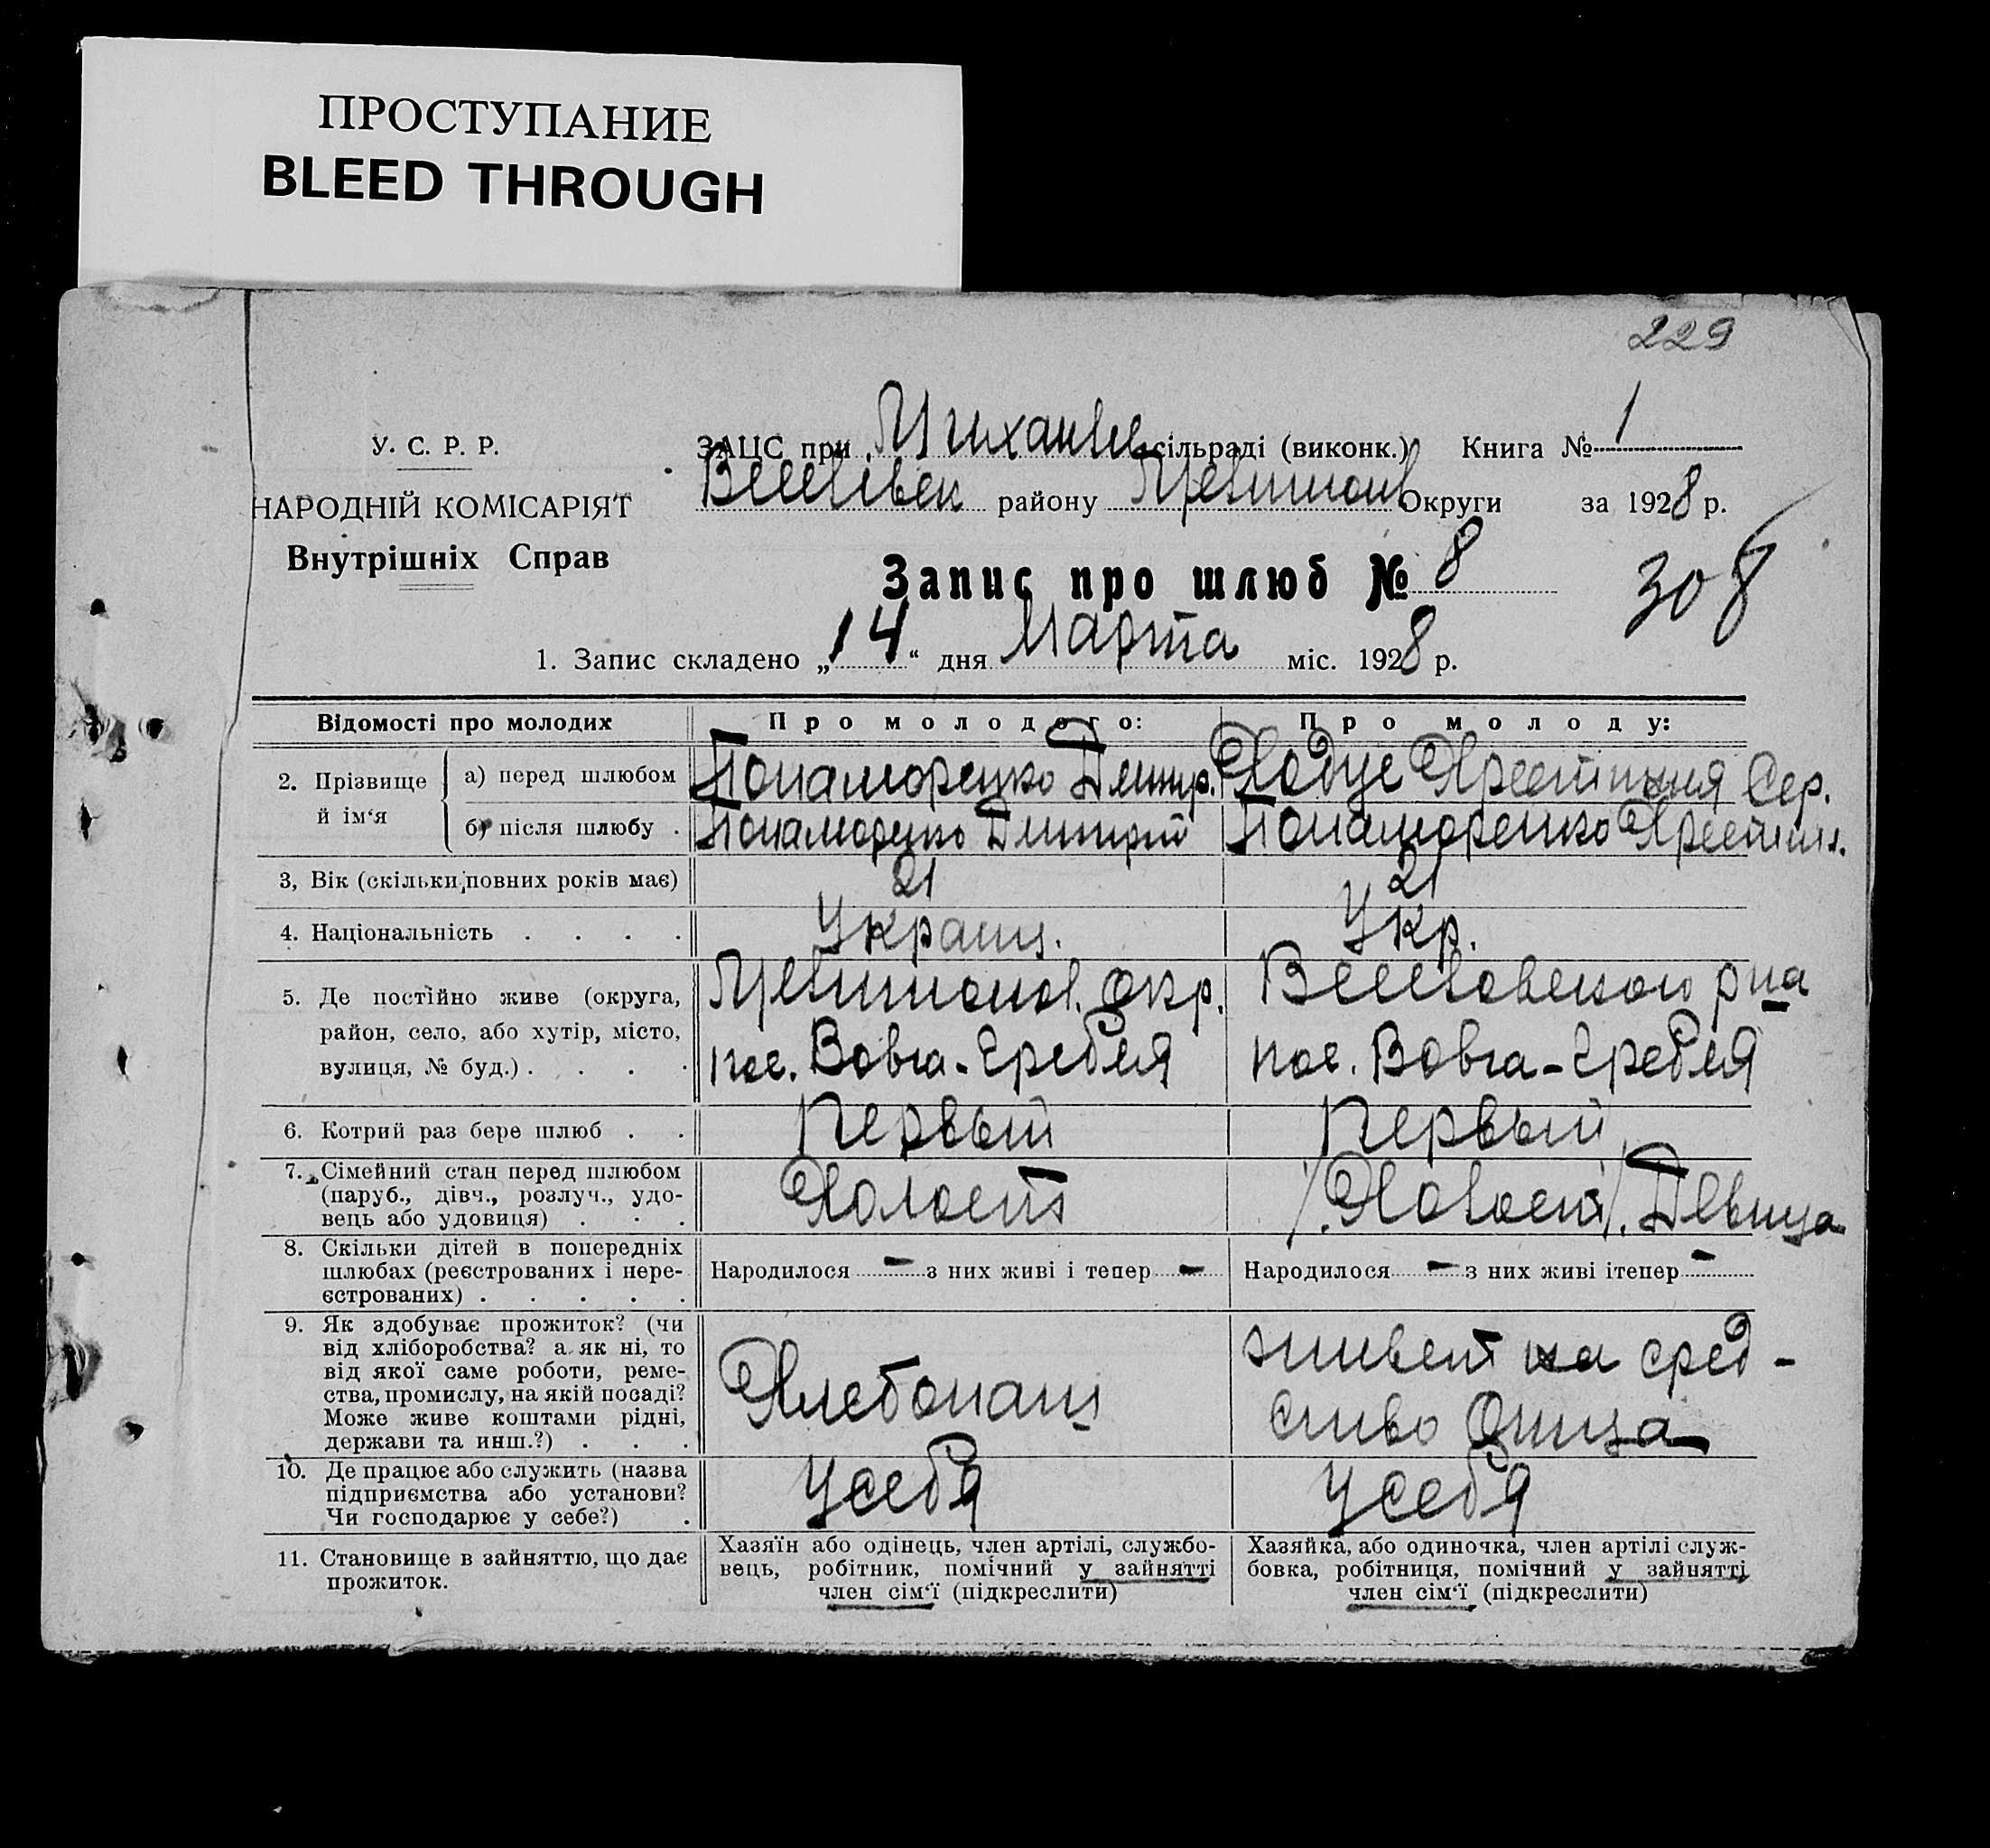 ПРОСТУПАНИЕ
BLEED THROUGH
229
У. С. Р. Р.
НАРОДНІЙ КОМІСАРІЯТ
Внутрішніх Справ
ЗАЦС при Михайлів сільраді (виконк.) Книга № 1
району Округи за 1928 р.
Запис про шлюб № 8
308
1. Запис складено „14“ дня Марта міс. 1928 р.
Відомості про молодих
Про молодого:
Про молоду:
2. Прізвище й ім‘я
а) перед шлюбом
Понаморенко Дмитр.
Сер.
б) після шлюбу .
Понаморенко Дмитрий
Понаморенко
3, Вік (скільки повних років має)
21
21
4. Національність . . . .
Украин.
Укр.
5. Де постійно живе (округа,
район, село, або хутір, місто,
вулиця, № буд.) . . . .
окр.
пос. Вовча-Гребля
рна
пос. Вовча-Гребля
6. Котрий раз бере шлюб . .
Первый
Первый
7. Сімейний стан перед шлюбом
(паруб., дівч., розлуч., удо-
вець або удовиця) . . .
Холост
/.Холост/. Девица
8. Скільки дітей в попередніх
шлюбах (реєстрованих і нере-
єстрованих) . . . . .
Народилося — з них живі і тепер —
Народилося — з них живі ітепер —
9. Як здобуває прожиток? (чи
від хліборобства? а як ні, то
від якої саме роботи, реме-
ства, промислу, на якій посаді?
Може живе коштами рідні,
держави та инш.?) . . .
Хлебопаш
живет на сред-
ство Отца
10. Де працює або служить (назва
підприємства або установи?
Чи господарює у себе?) .
У себя
У себя
11. Становище в зайняттю, що дає
прожиток.
Хазяїн або одінець, член артілі, службо-
вець, робітник, помічний у зайнятті
член сім‘ї (підкреслити)
Хазяйка, або одиночка, член артілі служ-
бовка, робітниця, помічний у зайнятті
член сім‘ї (підкреслити)